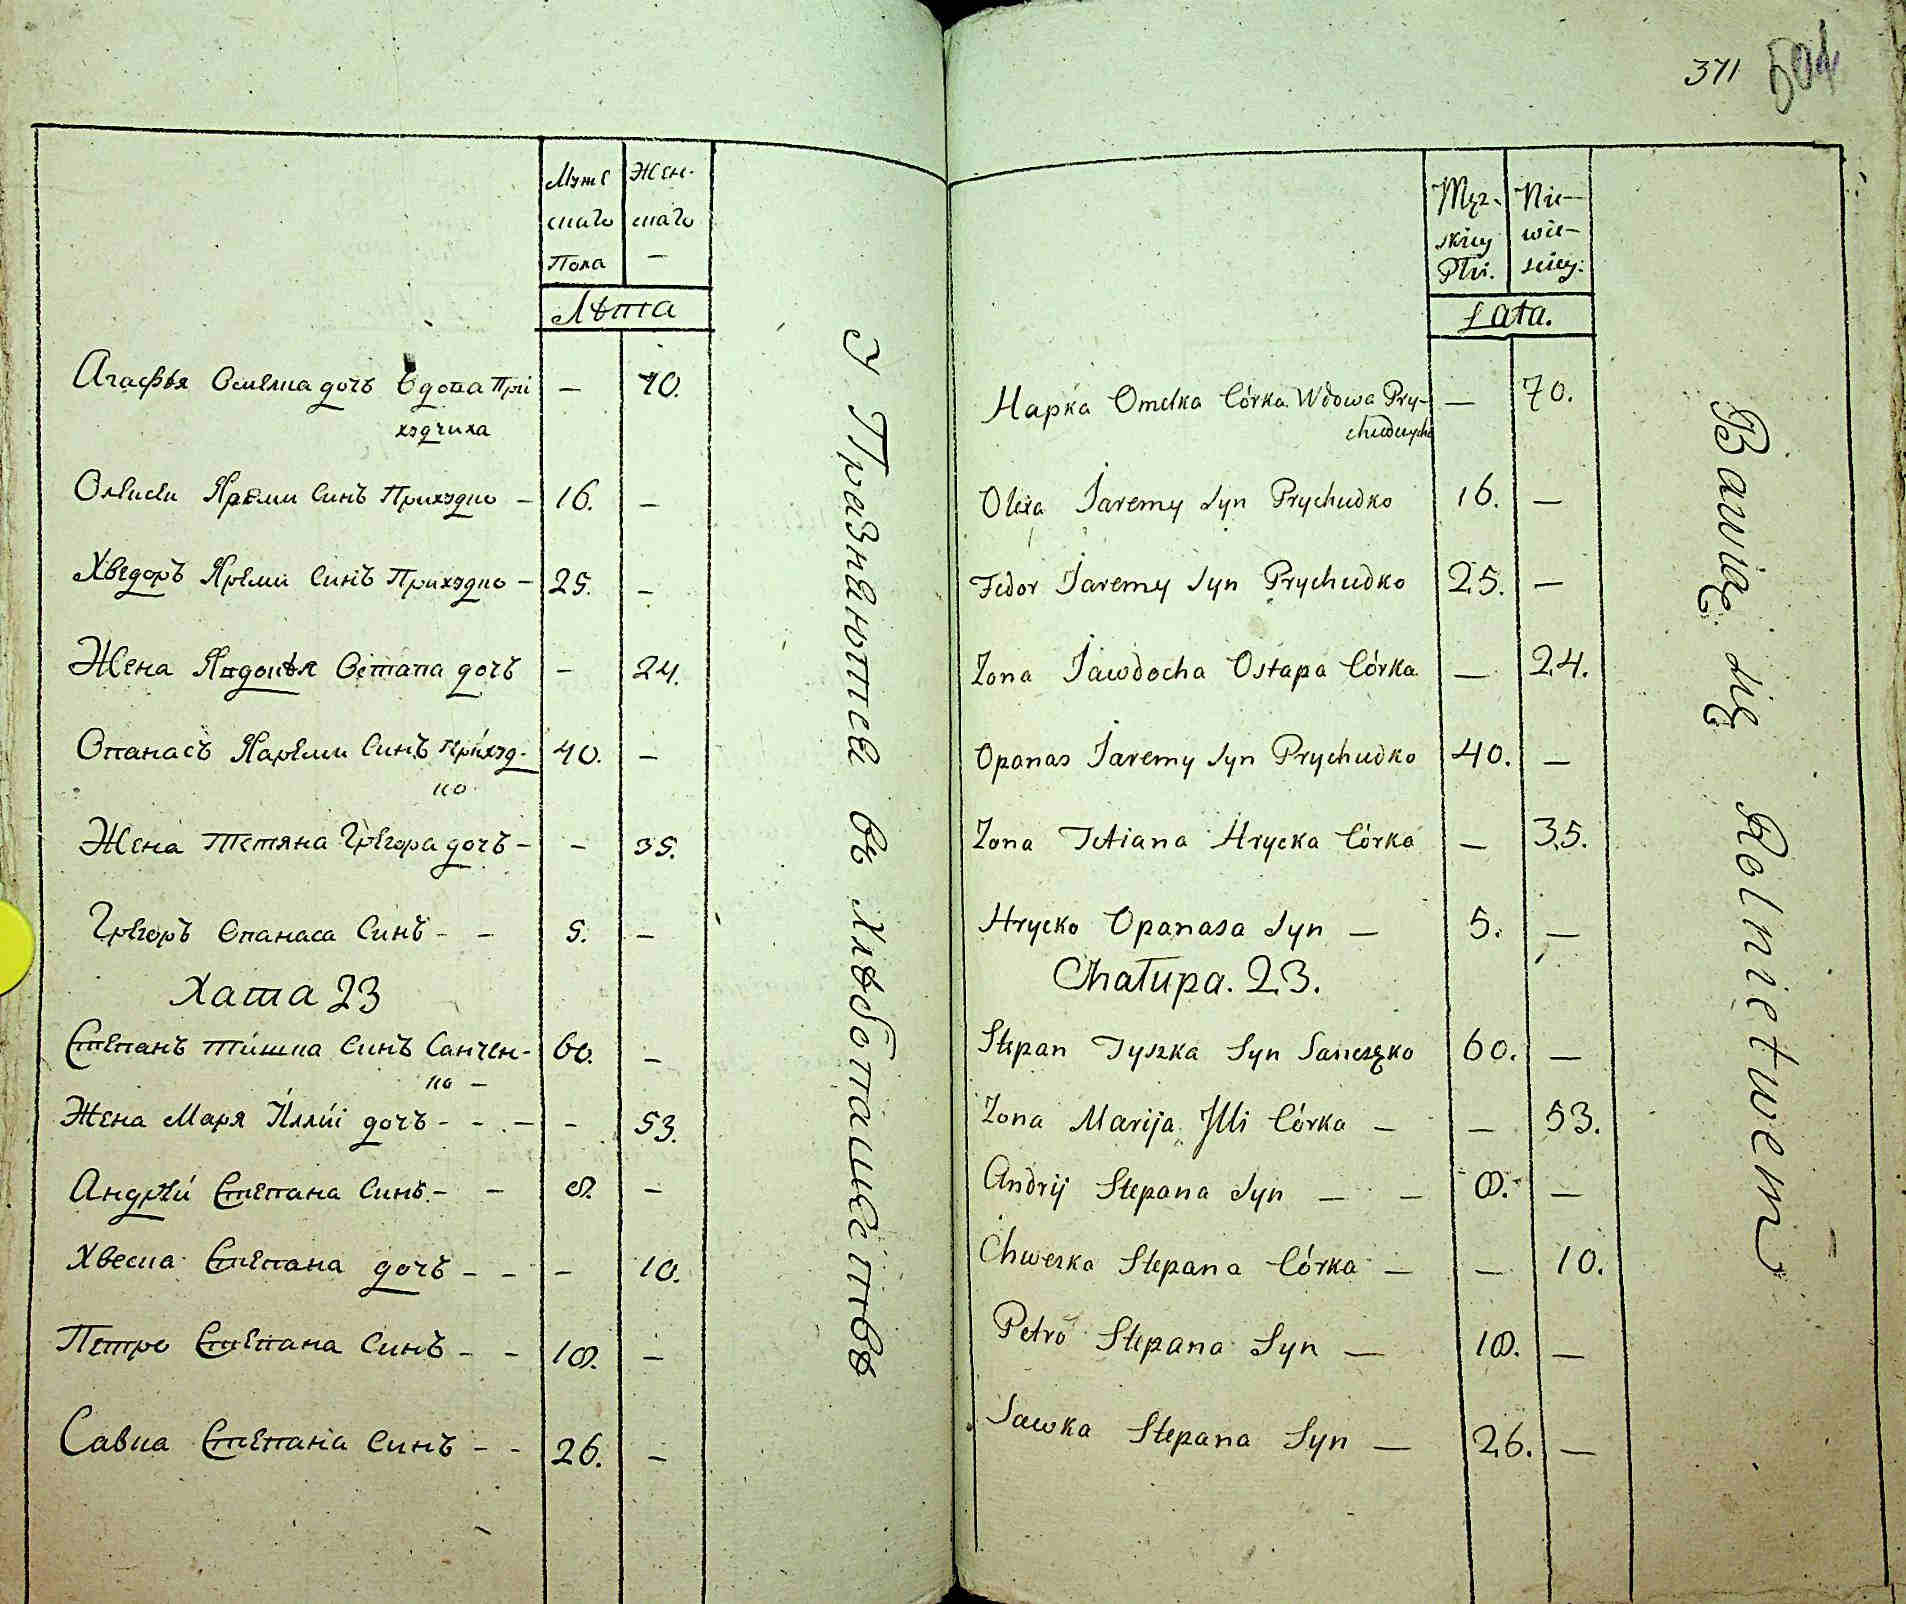 Муже Жен-
скаго скаго
Пола —
Лѣта
Агафья Омелка дочъ Вдова При — 70.
худчиха
Олѣксѣи Ярѣми Синъ Прихудко — 16. —
Хведоръ Ярѣми Синъ Прихудко — 25. —
Жена Явдокѣя Остапа дочъ — 24.
Опанасъ Яарѣми Синъ Прихуд- 40. —
ко
Жена Тетяна Григора дочъ — — 35.
Григоръ Опанаса Синъ — — 5. —
Хата 23
Степанъ Тишка Синъ Санчен- 60. —
ко —
Жена Маря Иллиі дочъ - - — - 53.
Андрѣй Степана Синъ - — 8. —
Хвеска Степана дочъ - - — 10.
Петро Степана Синъ - - 18. —
Савка Степана Синъ - - 26. —
У Празнѣнютсѧ въ хлѣбопашествѣ
371 504
Męz- Nie-
skiey wie-
Płci. sciey:
Lata.
Hapka Omelka Córka Wdowa Pry- — 70.
chudczycha
Olexa Jaremy Syn Prychudko 16. —
Fedor Jaremy Syn Prychudko 25. —
Zona Jawdocha Ostapa Córka — 24.
Opanas Jaremy Syn Prychudko 40. —
Zona Tetiana Hrycka Córka — 35.
Hrycko Opanasa Syn — 5. —
Chałupa. 23.
Stepan Tyszka Syn Sanczęko 60. —
Zona Marija Jlli Córka — — 53.
Andrij Stepana Syn — — 8. —
Chweska Stepana Córka — — 10.
Petro Stepana Syn — 18. —
Sawka Stepana Syn — 26. —
Bawią się Rolnictwem